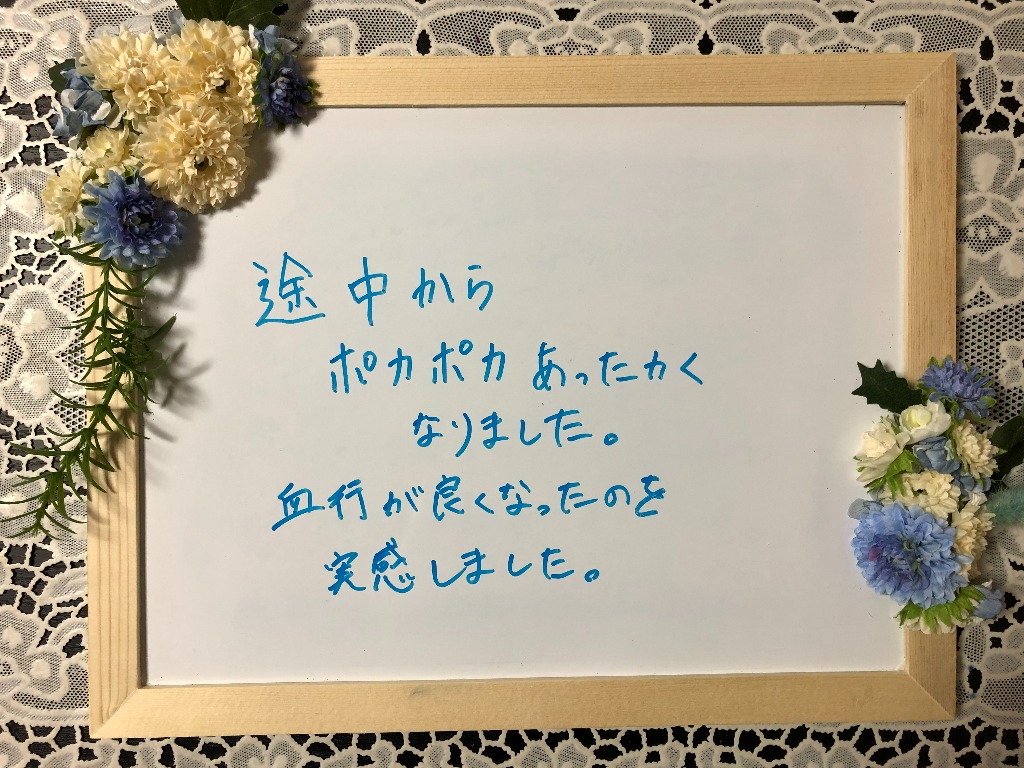 途中から
ポカポカあったかく
なりました。
血行が良くなったのを
実感しました。